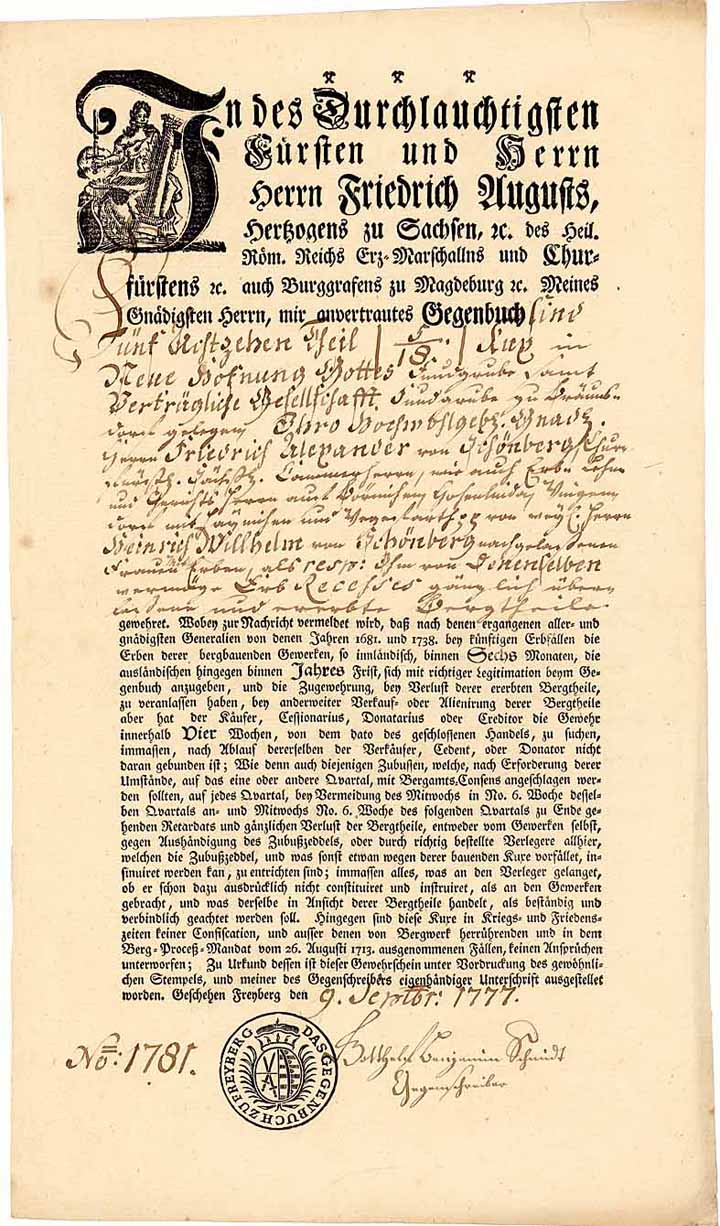 In des Durchlauchtigsten
Fürsten und Herrn
Herrn Friedrich Augusts,
Hertzogens zu Sachsen, ꝛc. des Heil.
Röm. Reichs Erz-Marschallns und Chur-
fürstens ꝛc. auch Burggrafens zu Magdeburg ꝛc. Meines
Gnädigsten Herrn, mir anvertrautes Gegenbuch sind
Fünf Achtzehen Theil | 5/18. | Kux in
Neue Hofnung Gottes Fundgrube samt
Verträgliche Gesellschafft Fundgrube zu Bräuns-
dorf gelegen Ihro Hochwohlgeb. Gnad.
Herrn Friedrich Alexander von Schönberg, Chur-
Fürstl. Sächß. Cammerherrn, wie auch Erb- Lehn-
und Gerichts Herrn auf Börnichen,
dorf mit und von Herrn
Heinrich Willhelm von Schönberg nachgelaßenen
Frauen Erben, als resp: von Denenselben
vermöge Erb Recesses gänzlich über-
laßene und ererbte Bergtheile.
gewehret. Wobey zur Nachricht vermeldet wird, daß nach denen ergangenen aller- und
gnädigsten Generalien von denen Jahren 1681. und 1738. bey künftigen Erbfällen die
Erben derer bergbauenden Gewerken, so innländisch, binnen Sechs Monaten, die
ausländischen hingegen binnen Jahres Frist, sich mit richtiger Legitimation beym Ge-
genbuch anzugeben, und die Zugewehrung, bey Verlust derer ererbten Bergtheile,
zu veranlassen haben, bey anderweiter Verkauf- oder Alienirung derer Bergtheile
aber hat der Käufer, Cessionarius, Donatarius oder Creditor die Gewehr
innerhalb Vier Wochen, von dem dato des geschlossenen Handels, zu suchen,
immassen, nach Ablauf dererselben der Verkäufer, Cedent, oder Donator nicht
daran gebunden ist; Wie denn auch diejenigen Zubussen, welche, nach Erforderung derer
Umstände, auf das eine oder andere Qvartal, mit Bergamts-Consens angeschlagen wer-
den sollten, auf jedes Qvartal, bey Vermeidung des Mitwochs in No. 6. Woche dessel-
ben Qvartals an- und Mitwochs No. 6. Woche des folgenden Qvartals zu Ende ge-
henden Retardats und gänzlichen Verlust der Bergtheile, entweder vom Gewerken selbst,
gegen Aushändigung des Zubußzeddels, oder durch richtig bestellte Verlegere allhier,
welchen die Zubußzeddel, und was sonst etwan wegen derer bauenden Kuxe vorfället, in-
sinuiret werden kan, zu entrichten sind; immassen alles, was an den Verleger gelanget,
ob er schon dazu ausdrücklich nicht constituiret und instruiret, als an den Gewerken
gebracht, und was derselbe in Ansicht derer Bergtheile handelt, als beständig und
verbindlich geachtet werden soll. Hingegen sind diese Kuxe in Kriegs- und Friedens-
zeiten keiner Confiscation, und ausser denen von Bergwerk herrührenden und in dem
Berg-Proceß-Mandat vom 26. Augusti 1713. ausgenommenen Fällen, keinen Ansprüchen
unterworfen; Zu Urkund dessen ist dieser Gewehrschein unter Vordruckung des gewöhnli-
chen Stempels, und meiner des Gegenschreibers eigenhändiger Unterschrift ausgestellet
worden. Geschehen Freyberg den 9. Septbr: 1777.
No: 1781.
DAS GEGENBUCH ZU FREYBERG
VA
Gotthelf Benjamin Schmidt
Gegenschreiber